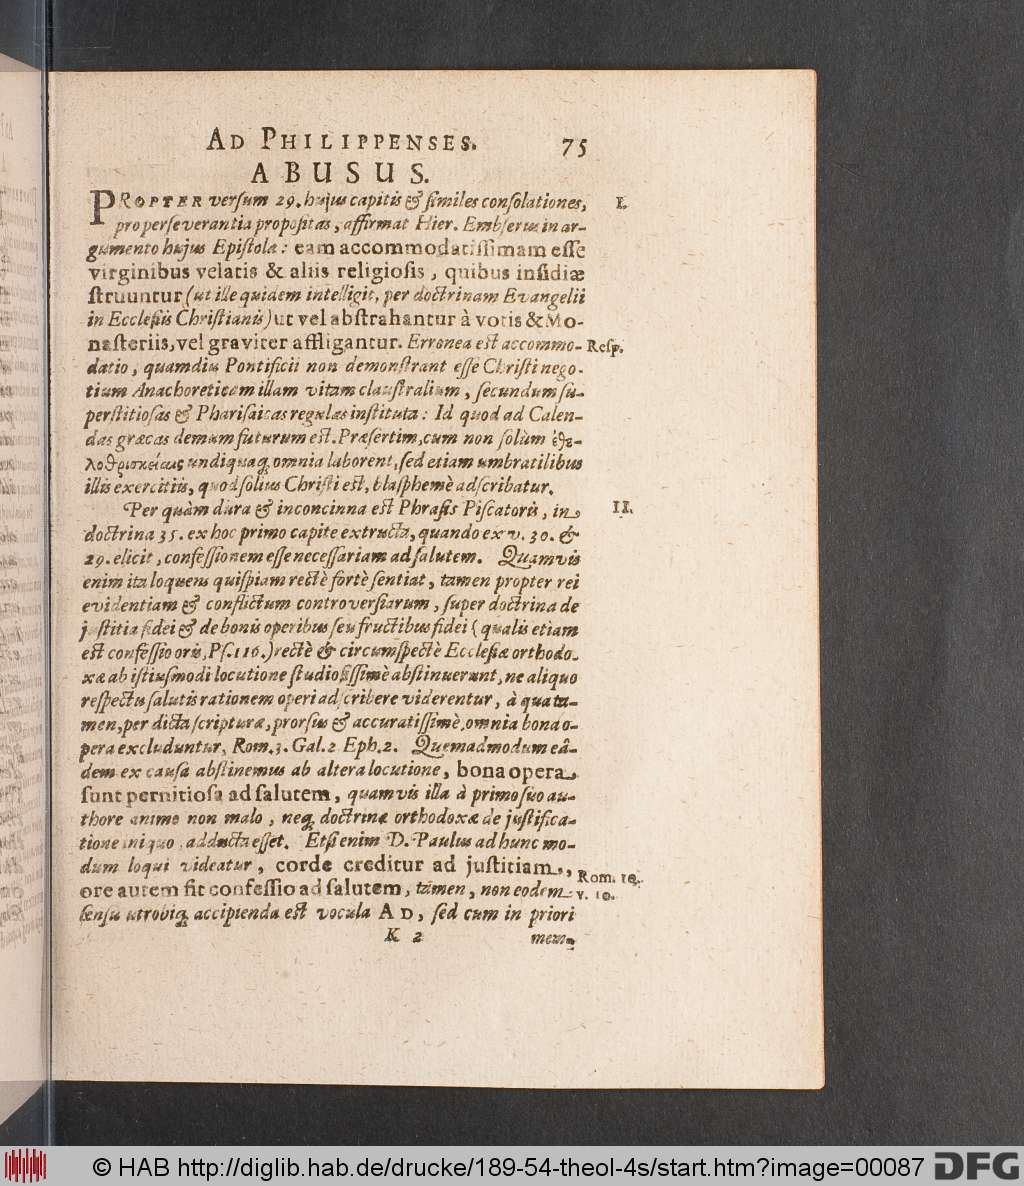 AD PHILIPPENSES. 75
ABUSUS.
PROPTER versum 29. hujus capitis & similes consolationes, I.
pro perseverantia propositas, affirmat Hier. Embserus in ar-
gumento hujus Epistolæ: eam accommodatissimam esse
virginibus velatis & aliis religiosis, quibus insidiæ
struuntur (ut ille quidem intelligit, per doctrinam Evangelii
in Ecclesiis Christianis) ut vel abstrahantur à votis & Mo-
nasteriis, vel graviter affligantur. Erronea est accommo- Resp.
datio, quamdiu Pontificii non demonstrant esse Christi nego-
tium Anachoreticam illam vitam claustralium, secundum su-
perstitiosas & Pharisaicas regulas instituta: Id quod ad Calen-
das græcas demum futurum est. Præsertim, cum non solùm ἐθε-
λοθρισκείαις undiquaq; omnia laborent, sed etiam umbratilibus
illis exercitiis, quod solius Christi est, blasphemè adscribatur.
Per quàm dura & inconcinna est Phrasis Piscatoris, in II.
doctrina 35. ex hoc primo capite extructa, quando ex v. 30. &
29. elicit, confessionem esse necessariam ad salutem. Quamvis
enim ita loquens quispiam rectè fortè sentiat, tamen propter rei
evidentiam & conflictum controversiarum, super doctrina de
justitia fidei & de bonis operibus seu fructibus fidei (qualis etiam
est confessio oris, Ps. 116.) rectè & circumspectè Ecclesiæ orthodo-
xæ ab istiusmodi locutione studiosissimè abstinuerunt, ne aliquo
respectu salutis rationem operi adscribere viderentur, à qua ta-
men, per dicta scripturæ, prorsus & accuratissimè, omnia bona o-
pera excluduntur, Rom. 3. Gal. 2 Eph. 2. Quemadmodum eâ-
dem ex causa abstinemus ab altera locutione, bona opera
sunt pernitiosa ad salutem, quamvis illa à primo suo au-
thore animo non malo, neq; doctrinæ orthodoxæ de justifica-
tione iniquo, adducta esset. Etsi enim D. Paulus ad hunc mo-
dum loqui videatur, corde creditur ad justitiam,
ore autem fit confessio ad salutem, tamen, non eodem Rom. 10. v. 10.
sensu utrobiq; accipienda est vocula AD, sed cum in priori
K 2 mem-
© HAB http://diglib.hab.de/drucke/189-54-theol-4s/start.htm?image=00087 DFG